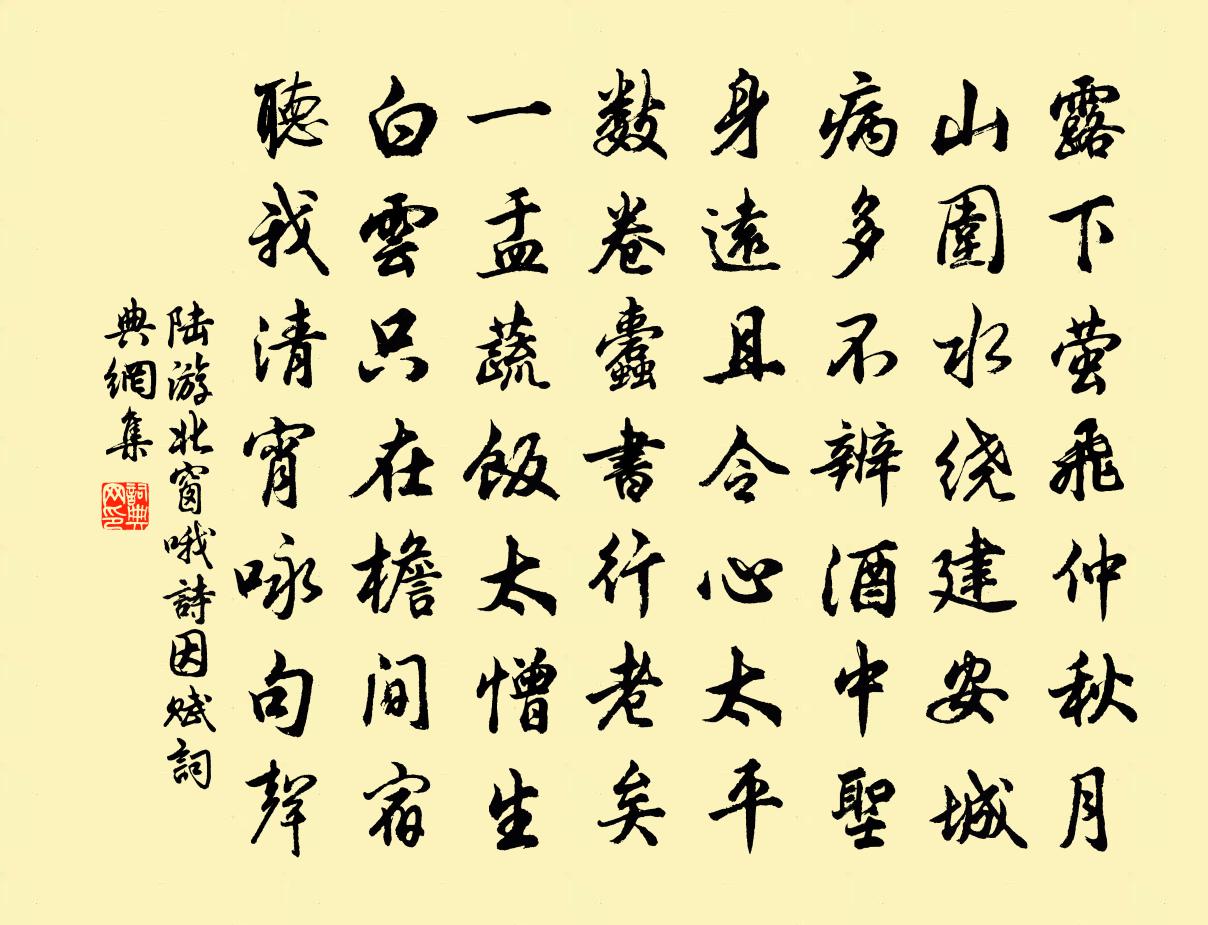 露下萤飛仲秋月
山圍水绕建安城
病多不辨酒中聖
身遠且令心太平
数卷蠹書行老矣
一盂蔬飯太憎生
白雲只在檐間宿
聽我清宵咏句聲
陆游北窗哦詩因赋詞
典網集
詞典
网印